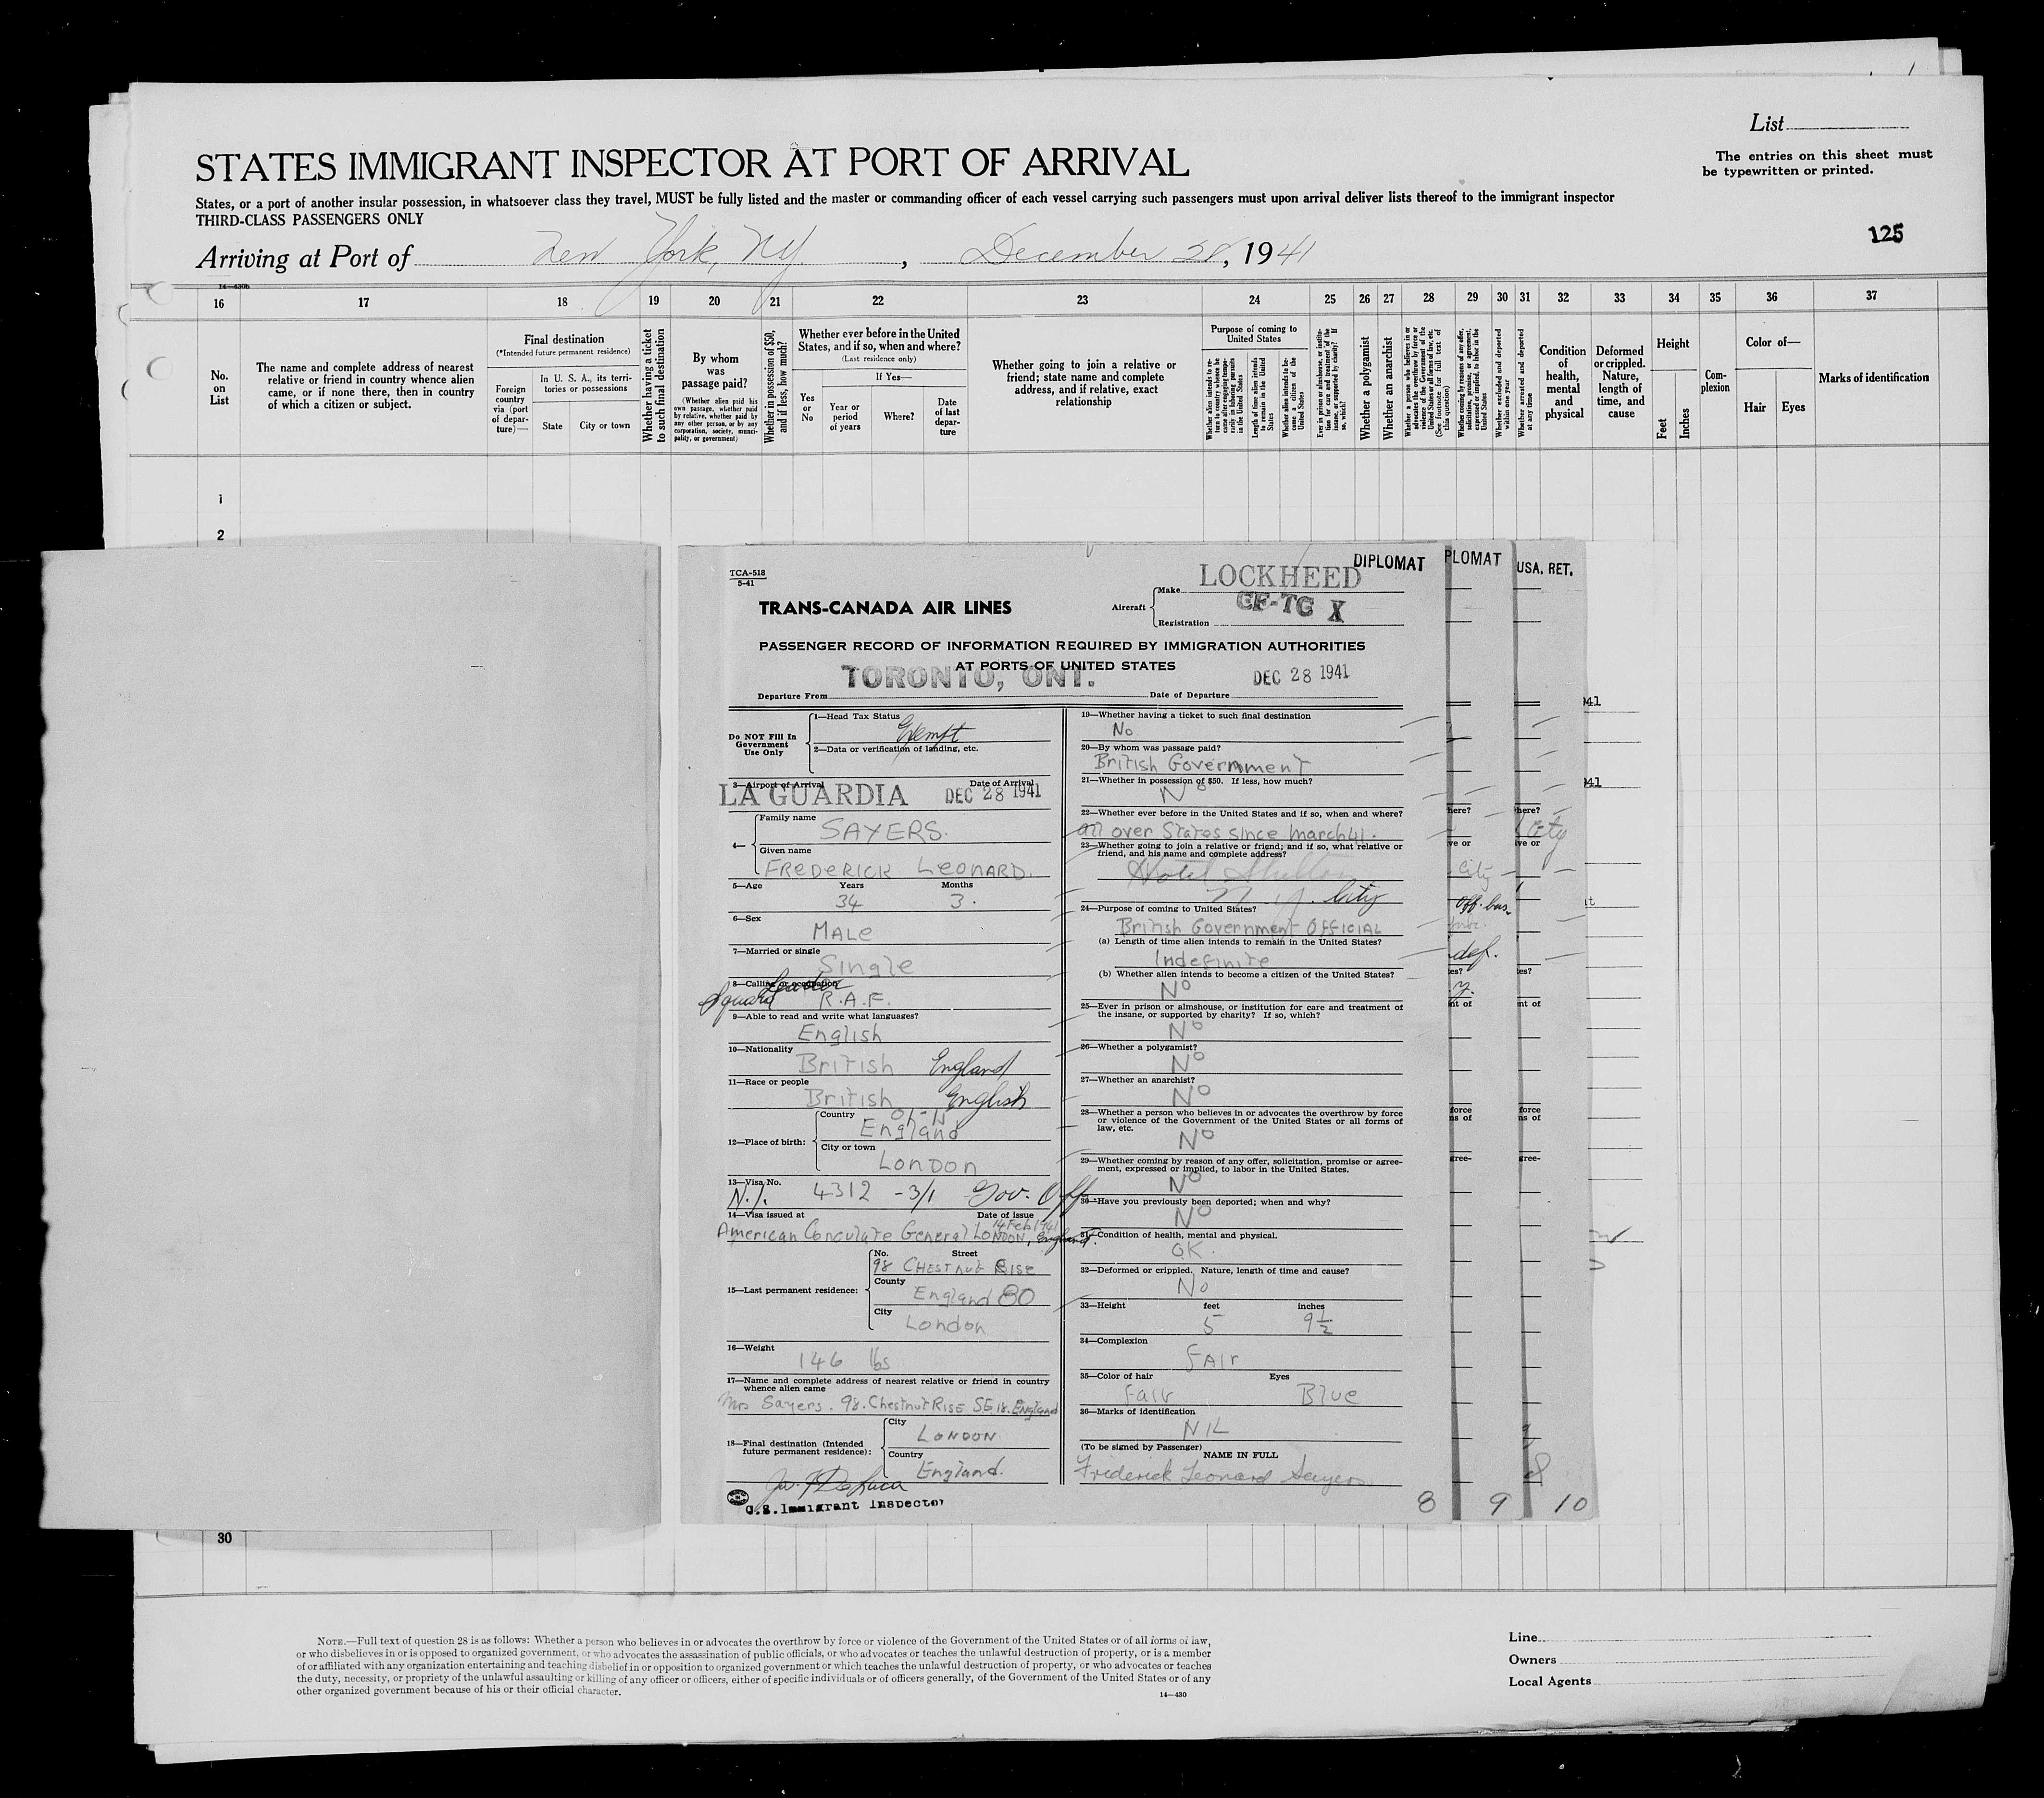 List
The entries on this sheet must
be typewritten or printed.
STATES IMMIGRANT INSPECTOR AT PORT OF ARRIVAL
States, or a port of another insular possession, in whatsoever class they travel, MUST be fully listed and the master or commanding officer of each vessel carrying such passengers must upon arrival deliver lists thereof to the immigrant inspector
THIRD-CLASS PASSENGERS ONLY
125
Arriving at Port of New York, NY, December 28, 1941
14—430b
16 17 18 19 20 21 22 23 24 25 26 27 28 29 30 31 32 33 34 35 36 37
No. on List
The name and complete address of nearest
relative or friend in country whence alien
came, or if none there, then in country
of which a citizen or subject.
Final destination
(*Intended future permanent residence)
Foreign country via (port of departure)—
In U. S. A., its territories or possessions
State City or town
Whether having a ticket to such final destination
By whom was passage paid?
(Whether alien paid his own passage, whether paid by relative, whether paid by any other person, or by any corporation, society, municipality, or government)
Whether in possession of $50, and if less, how much?
Whether ever before in the United States, and if so, when and where?
(Last residence only)
If Yes—
Yes or No
Year or period of years
Where?
Date of last departure
Whether going to join a relative or
friend; state name and complete
address, and if relative, exact
relationship
Purpose of coming to United States
Whether alien intends to return to country whence he came after engaging temporarily in laboring pursuits in the United States
Length of time alien intends to remain in the United States
Whether alien intends to become a citizen of the United States
Ever in prison or almshouse, or institution for care and treatment of the insane, or supported by charity? If so, which?
Whether a polygamist
Whether an anarchist
Whether a person who believes in or advocates the overthrow by force or violence of the Government of the United States or all forms of law, etc. (See footnote for full text of this question)
Whether coming by reasons of any offer, solicitation, promise, or agreement, expressed or implied, to labor in the United States
Whether excluded and deported within one year
Whether arrested and deported at any time
Condition of health, mental and physical
Deformed or crippled. Nature, length of time, and cause
Height
Feet Inches
Complexion
Color of—
Hair Eyes
Marks of identification
1
2
30
TCA-518
5-41
TRANS-CANADA AIR LINES
Aircraft
Make LOCKHEED
Registration CF-TC X
DIPLOMAT
PLOMAT
USA. RET.
PASSENGER RECORD OF INFORMATION REQUIRED BY IMMIGRATION AUTHORITIES
AT PORTS OF UNITED STATES
Departure From TORONTO, ONT. Date of Departure DEC 28 1941
Do NOT Fill In Government Use Only
1—Head Tax Status Exempt
2—Data or verification of landing, etc.
3—Airport of Arrival Date of Arrival
LA GUARDIA DEC 28 1941
4—
Family name
SAYERS.
Given name
FREDERICK LEONARD.
5—Age Years Months
34 3.
6—Sex
MALE
7—Married or single
Single
8—Calling or occupation
Squad Leader R.A.F.
9—Able to read and write what languages?
English
10—Nationality
British England
11—Race or people
British English
12—Place of birth:
Country
England
City or town
LONDON
13—Visa No.
N.I. 4312 -3/1 Gov. Off
14—Visa issued at Date of issue
14 Feb 1941
American Conculate General LONDON, England.
15—Last permanent residence:
No. Street
98 CHESTNUT RISE
County
England 80
City
London
16—Weight
146 lbs
17—Name and complete address of nearest relative or friend in country
whence alien came
Mrs Sayers. 98. Chestnut RISE SE.18. England
18—Final destination (Intended
future permanent residence):
City
LONDON
Country
England.
U.S. Immigrant Inspector
19—Whether having a ticket to such final destination
No
20—By whom was passage paid?
British Government
21—Whether in possession of $50. If less, how much?
No
22—Whether ever before in the United States and if so, when and where?
all over States since March 41.
23—Whether going to join a relative or friend; and if so, what relative or
friend, and his name and complete address?
Hotel Shelton
N.Y. City
24—Purpose of coming to United States?
British Government OFFICIAL
(a) Length of time alien intends to remain in the United States?
Indefinite
(b) Whether alien intends to become a citizen of the United States?
No
25—Ever in prison or almshouse, or institution for care and treatment of
the insane, or supported by charity? If so, which?
No
26—Whether a polygamist?
No
27—Whether an anarchist?
No
28—Whether a person who believes in or advocates the overthrow by force
or violence of the Government of the United States or all forms of
law, etc.
No
29—Whether coming by reason of any offer, solicitation, promise or agree-
ment, expressed or implied, to labor in the United States.
No
30—Have you previously been deported; when and why?
No
31—Condition of health, mental and physical.
OK.
32—Deformed or crippled. Nature, length of time and cause?
No
33—Height feet inches
5 9½
34—Complexion
FAIr
35—Color of hair Eyes
Fair Blue
36—Marks of identification
NIL
(To be signed by Passenger)
NAME IN FULL
Frederick Leonard Sayers
8 9 10
NOTE.—Full text of question 28 is as follows: Whether a person who believes in or advocates the overthrow by force or violence of the Government of the United States or of all forms of law,
or who disbelieves in or is opposed to organized government, or who advocates the assassination of public officials, or who advocates or teaches the unlawful destruction of property, or is a member
of or affiliated with any organization entertaining and teaching disbelief in or opposition to organized government or which teaches the unlawful destruction of property, or who advocates or teaches
the duty, necessity, or propriety of the unlawful assaulting or killing of any officer or officers, either of specific individuals or of officers generally, of the Government of the United States or of any
other organized government because of his or their official character.
14—430
Line
Owners
Local Agents